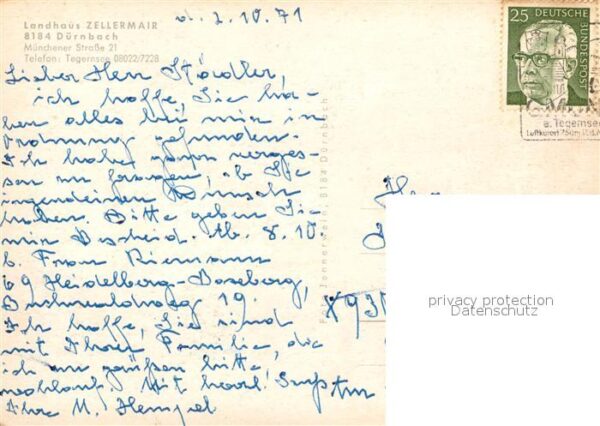 Landhaus ZELLERMAIR
8184 Dürnbach
Münchener Straße 21
Telefon: Tegernsee 08022/7228
d. 2.10.71
25 DEUTSCHE
BUNDESPOST
a. Tegernsee
Luftkurort
Lieber Herr Städler,
ich hoffe, Sie ha-
ben alles bei mir in
Ordnung gefunden.
Ich habe ganz verges-
sen zu fragen, ob Sie
irgendeinen Wunsch
haben. Bitte geben Sie
mir Bescheid. Ab. 8.10.
b. Frau Riemann
69 Heidelberg-Boxberg,
Buchwaldweg 19.
Ich hoffe, Sie sind
mit Ihrer Familie, die
ich zu grüßen bitte
wohlauf. Mit herzl.
Ihre M. Hempel
8184 Dürnbach
privacy protection
Datenschutz